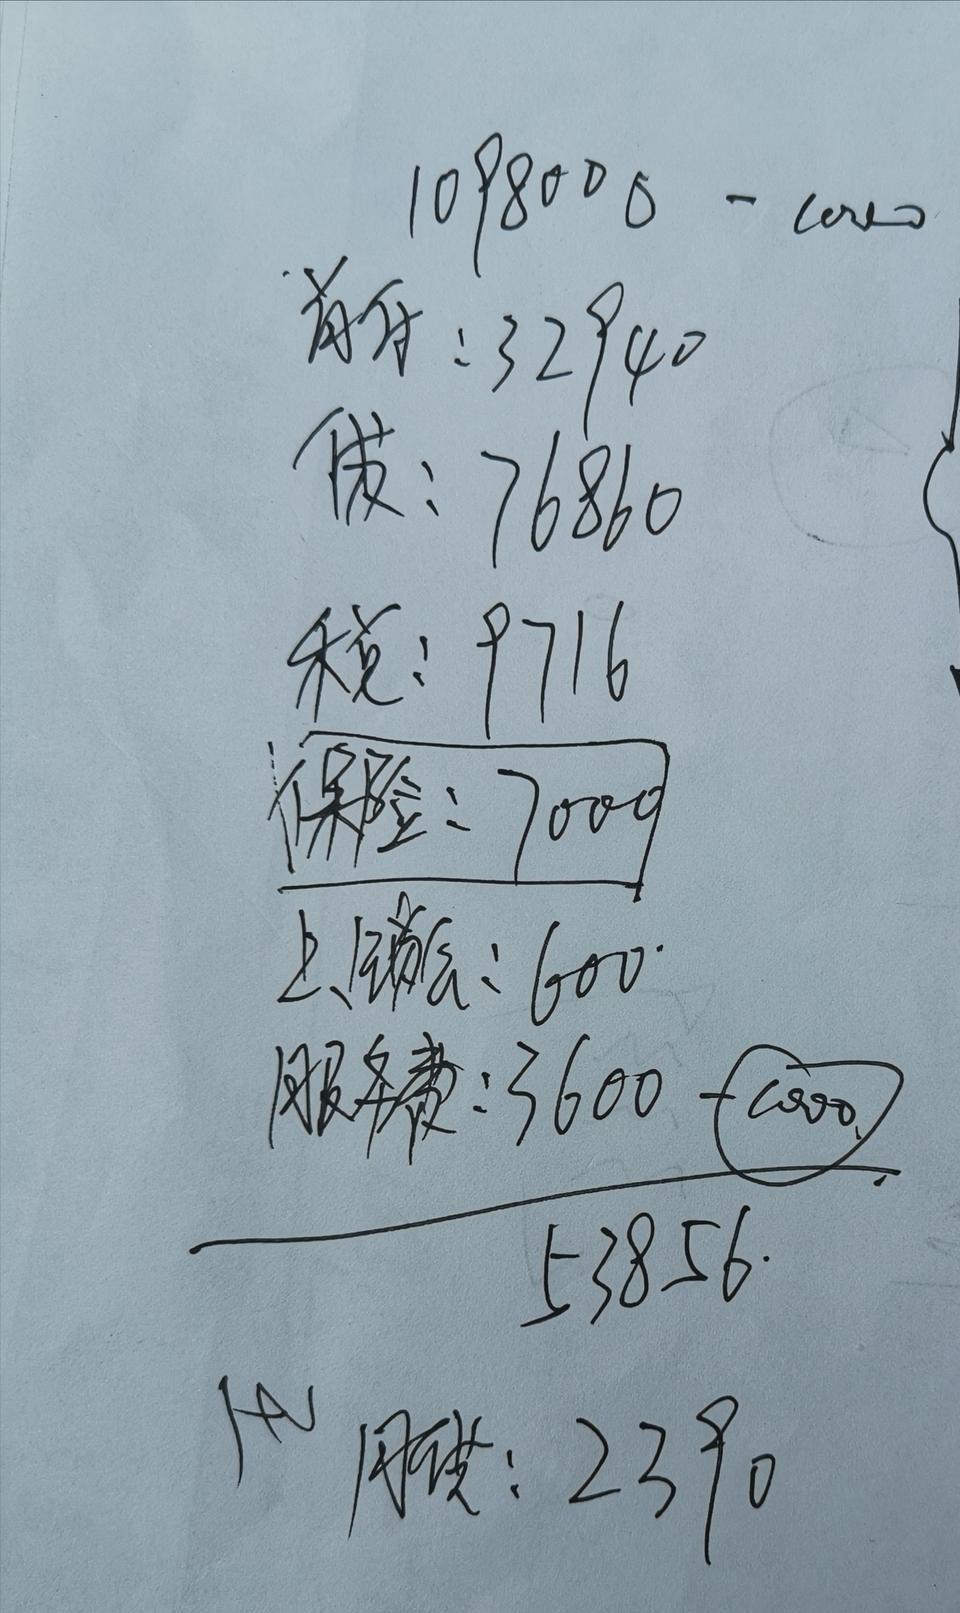 1098000 -
首付:32940
贷:76860
税:9716
保险:7000
上户:600
服务费:3600 -
53856
月供:2390